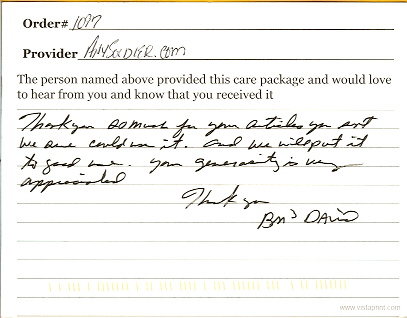 Order# 1097
Provider AnySoldier.com
The person named above provided this care package and would love
to hear from you and know that you received it
Thank you so much for your articles you sent
We sure could use it. and we will put it
to good use. your generosity is very
appreciated
Thank you
BM3 David
www.vistaprint.com